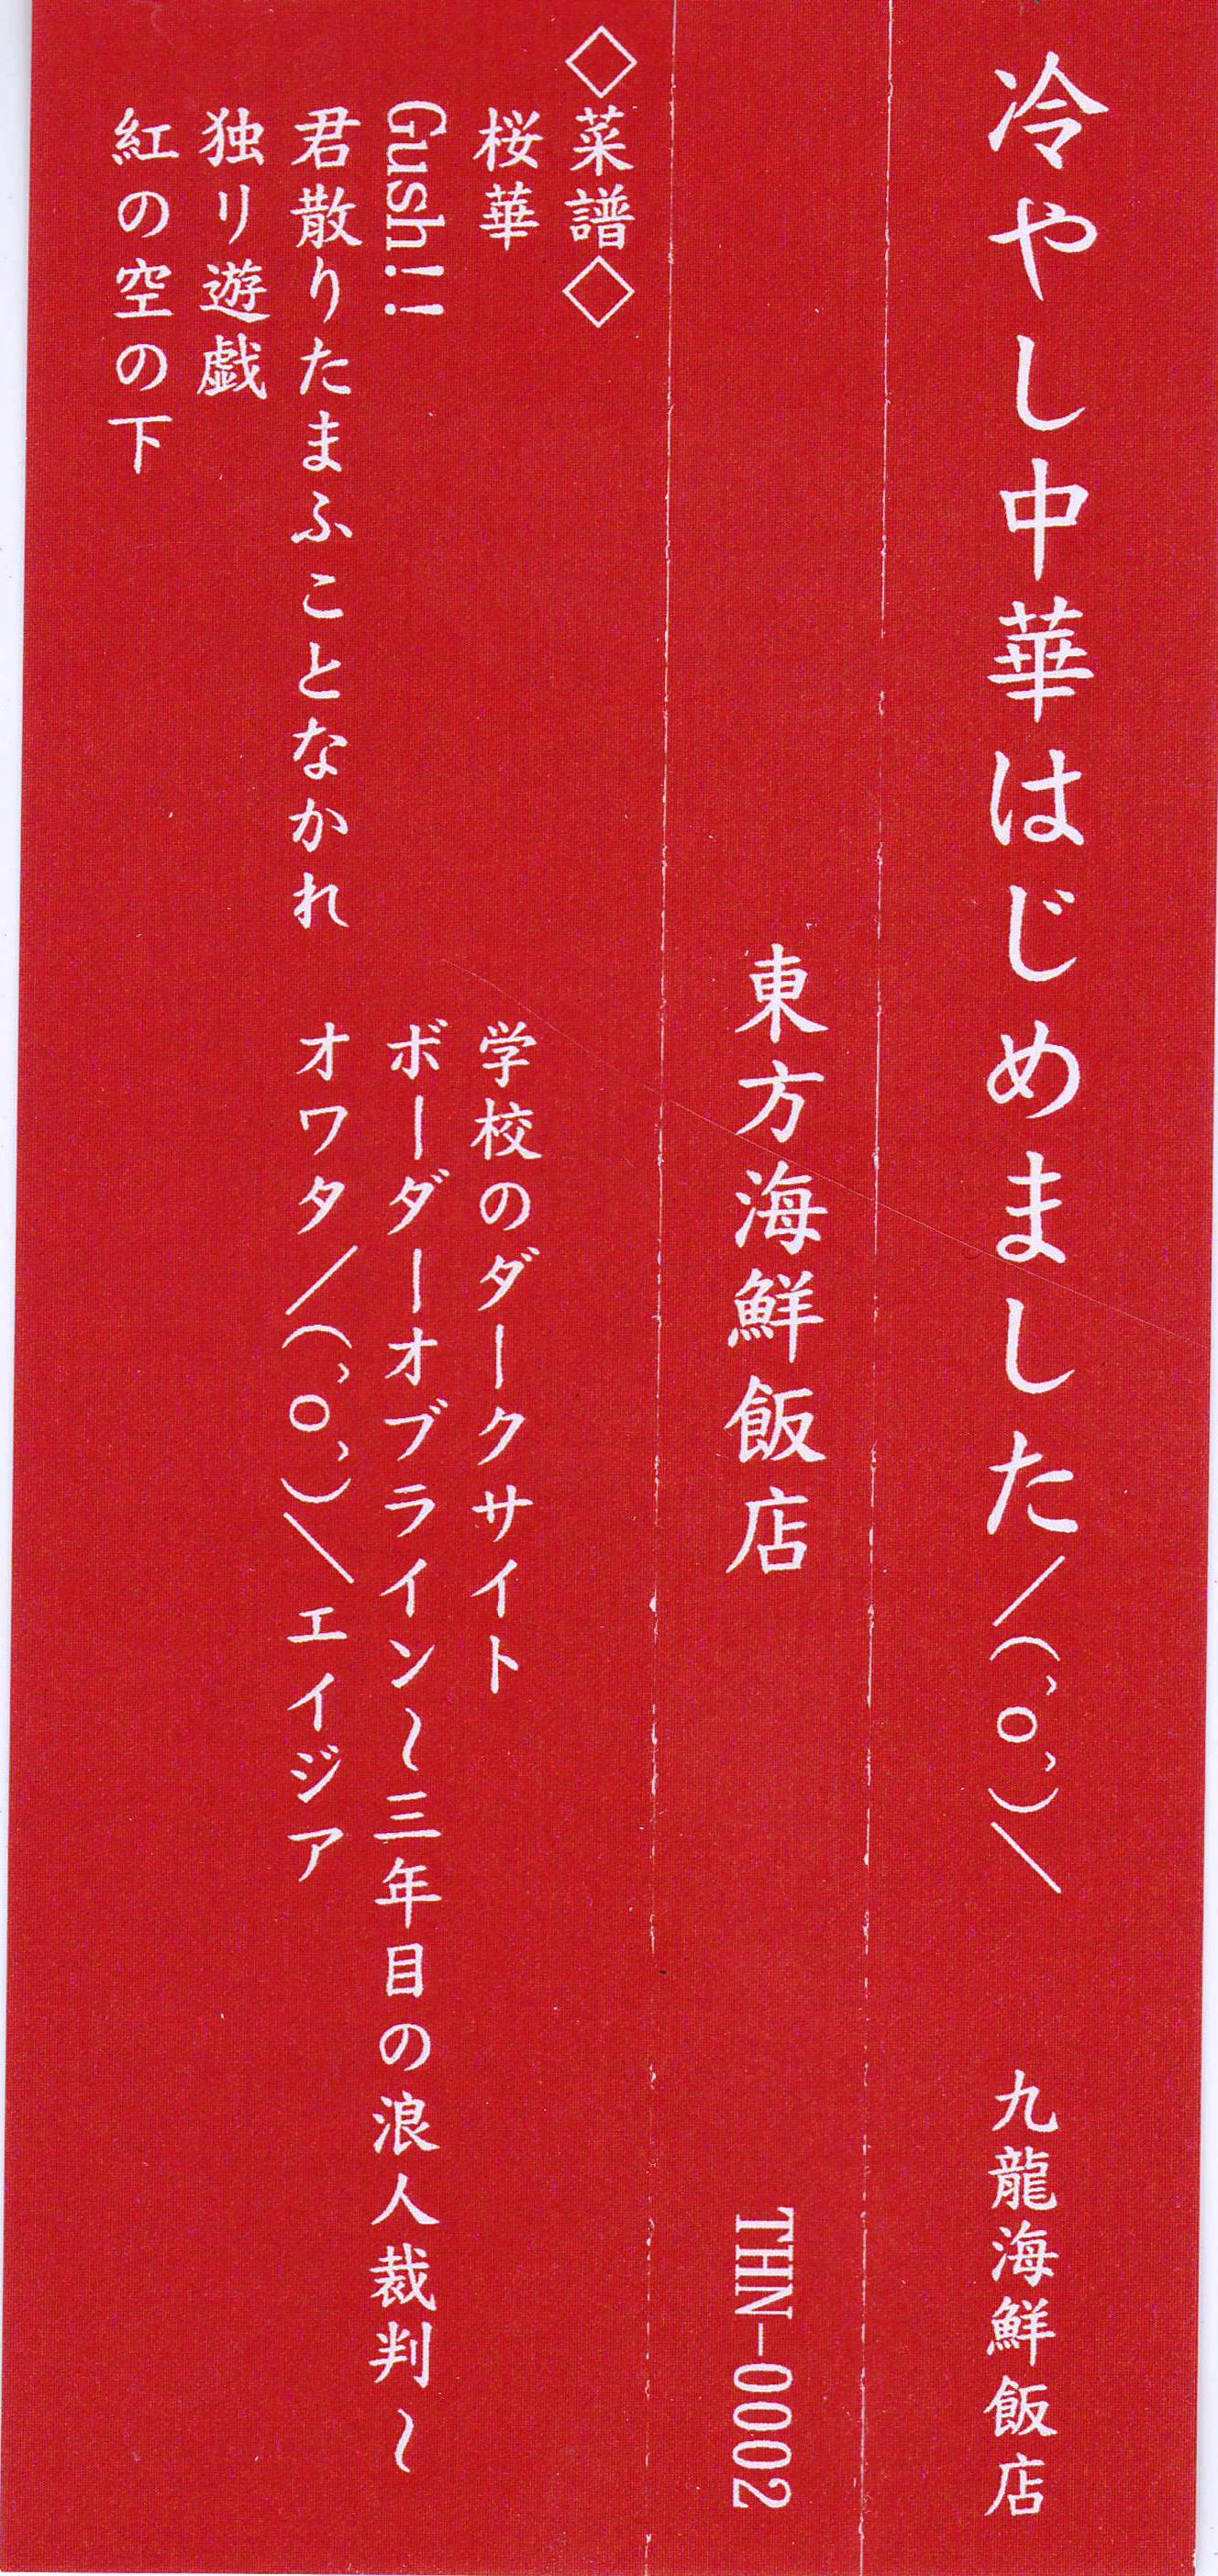 冷やし中華はじめました／(’o’)＼
九龍海鮮飯店
東方海鮮飯店
THN-0002
◇菜譜◇
桜華
Gush!!
君散りたまふことなかれ
独リ遊戯
紅の空の下
学校のダークサイト
ボーダーオブライン～三年目の浪人裁判～
オワタ／(’o’)＼エイジア